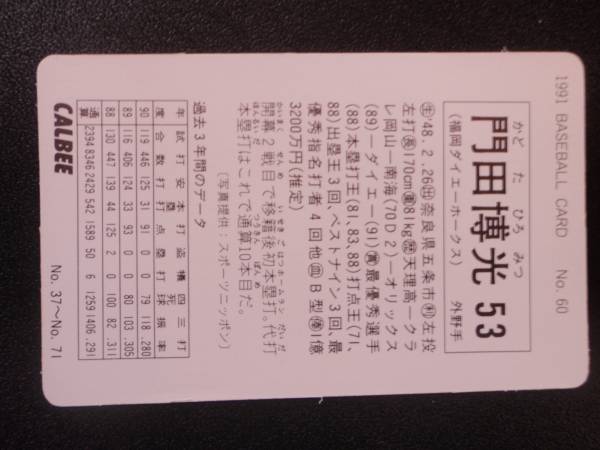 1991 BASEBALL CARD No. 60
かどたひろみつ
門田博光 53
(福岡ダイエーホークス) 外野手
㊓'48．2．26㊷奈良県五条市㊑左投
左打㊔170cm㊕81kg㊭天理高―クラ
レ岡山―南海(70D2)―オリックス
(89)―ダイエー(91)㊤最優秀選手
(88)本塁打王(81,83,88)打点王(71,
88)出塁王3回、ベストナイン3回、最
優秀指名打者4回他㊞B型㊝1億
3200万円(推定)
かいまく せんめ いせきごはつホームラン だいだ
開幕2戦目で移籍後初本塁打。代打
ほんるいだ つうさん ほんめ
本塁打はこれで通算10本目だ。
(写真提供：スポーツニッポン)
過去3年間のデータ
年度 試合 打数 安打 本塁打 打点 盗塁 犠打 四死球 三振 打率
90 119 446 125 31 91 0 0 79 118 .280
89 116 406 124 33 93 0 0 80 103 .305
88 130 447 139 44 125 2 0 100 82 .311
通算 2394 8346 2429 542 1589 50 6 1259 1406 .291
CALBEE No. 37～No. 71